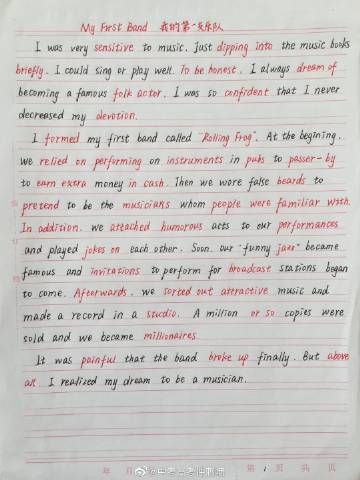 My First Band 我的第一支乐队
I was very sensitive to music. Just dipping into the music books
briefly, I could sing or play well. To be honest, I always dream of
becoming a famous folk actor. I was so confident that I never
decreased my devotion.
I formed my first band called "Rolling Frog". At the begining,
we relied on performing on instruments in pubs to passer-by
to earn extra money in cash. Then we wore false beards to
pretend to be the musicians whom people were familiar with.
In addition, we attached humorous acts to our performances
and played jokes on each other. Soon, our "funny jazz" became
famous and invitations to perform for broadcast stations began
to come. Afterwards, we sorted out attractive music and
made a record in a studio. A million or so copies were
sold and we became millionaires.
It was painful that the band broke up finally. But above
all, I realized my dream to be a musician.
年 月
第 1 页 共 页